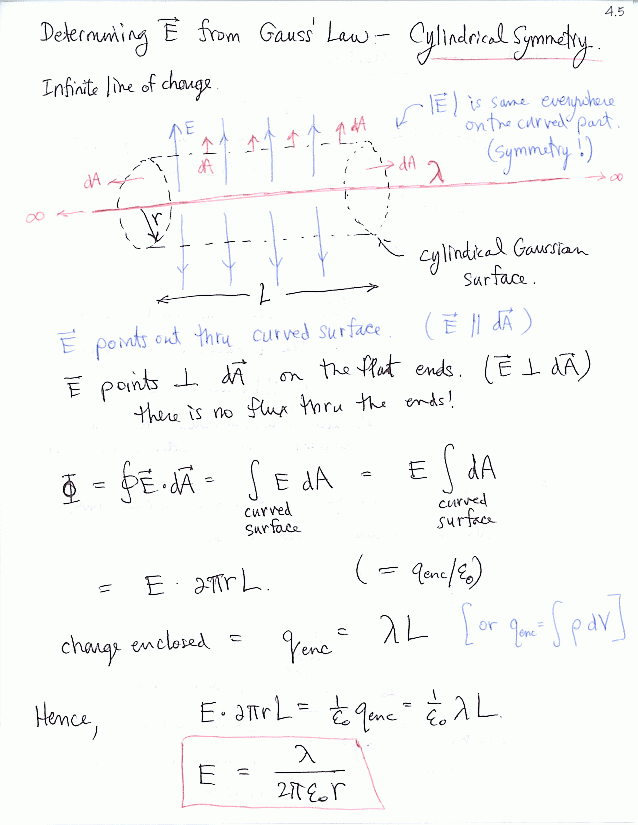 4.5
Determining E⃗ from Gauss' Law – Cylindrical Symmetry.
Infinite line of charge.
E dA |E⃗| is same everywhere
on the curved part.
(symmetry!)
dA dA dA λ
∞ ∞
r
Cylindical Gaussian
surface.
L
E⃗ points out thru curved surface. (E⃗ ∥ dA⃗)
E⃗ points ⊥ dA⃗ on the flat ends. (E⃗ ⊥ dA⃗)
there is no flux thru the ends!
Φ = ∮E⃗·dA⃗ = ∫ E dA = E ∫ dA
curved surface curved surface
= E · 2πrL. (= qenc/ε₀)
charge enclosed = qenc = λL [or qenc = ∫ρdV]
Hence, E · 2πrL = 1/ε₀ qenc = 1/ε₀ λL.
E = λ / 2πε₀r